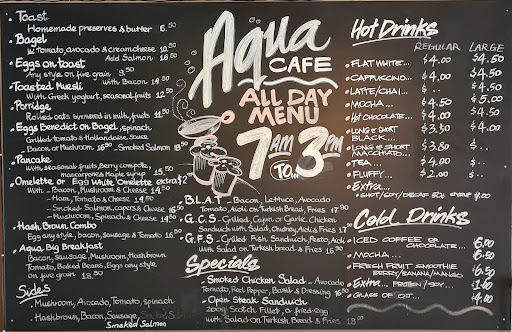 Toast
Homemade preserves & butter 6.50
Bagel
w/ Tomato, avocado & creamcheese 10.50
Add Salmon 16.50
Eggs on toast
Any style on five grain 9.50
with Bacon 14.50
Toasted Muesli
With Greek yoghurt, seasonal fruits 12.50
Porridge
Rolled oats simmered in milk, fruits 11.50
Eggs Benedict on Bagel, spinach
Grilled tomato & Hollandaise Sauce
Bacon or Mushroom 16.50 - Smoked Salmon 18.50
Pancake
with seasonal fruits Berry compote,
mascarpone & Maple syrup 15.50
Omelette or Egg White Omelette extra $2
With - Bacon, Mushroom & Cheese 14.50
- Ham, Tomato & Cheese 14.50
- Smoked Salmon, capers & Cheese 16.50
- Mushroom, Spinach & Cheese 14.50
Hash Brown Combo
Egg any style, bacon, spinach & Tomato 16.50
Aqua Big Breakfast
Bacon, Sausage, Mushroom, Hashbrown
Tomato, Baked Beans, Eggs any style
on five grain 18.50
Sides
- Mushroom, Avocado, Tomato, spinach
- Hashbrown, Bacon, Sausage,
Smoked Salmon
Aqua
CAFE
ALL DAY
MENU
7AM
TO... 3PM
B.L.A.T - Bacon, Lettuce, Avocado
Tomato, Aioli on Turkish Bread, Fries 17.90
G.C.S - Grilled, Cajun or Garlic Chicken
Sandwich with Salad, Chutney, Aioli & Fries
G.F.S - Grilled Fish Sandwich, Pesto, Aioli
with Salad on Turkish bread & Fries
Specials
- Smoked Chicken Salad - Avocado
Tomato, Red Pepper, Basil & Dressing 16.50
- Open Steak Sandwich
200g Scotch Fillet, a fried egg
with Salad on Turkish Bread & Fries 18.00
Hot Drinks
REGULAR LARGE
FLAT WHITE... $4.00 $4.50
CAPPUCCINO... $4.00 $4.50
LATTE/CHAI... $ .. $4.50
MOCHA... $4.50 $5.00
Hot CHOCOLATE... $4.00 $4.50
LONG & SHORT
BLACK... $3.50 $4.00
LONG & SHORT
MACCHIATO... $3.80 $ ..
TEA... $4.00 $ ..
FLUFFY... $2.00 $ ..
Extra...
SHOT/SOY/DECAF 50¢ SYRUP
Cold Drinks
ICED COFFEE &
CHOCOLATE... 6.00
MOCHA... 6.50
FRESH FRUIT SMOOTHIE
BERRY/BANANA/MANGO 6.50
Extra... PROTEIN/SOY 1.00
GLASS OF 4.00